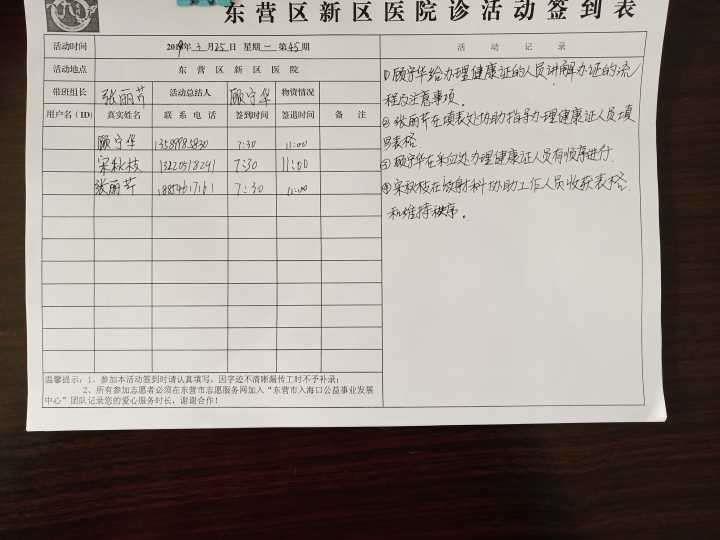 东营区新区医院诊活动签到表
活动时间 2019年3月25日 星期一 第45期 活动记录
活动地点 东营区新区医院
带班组长 张丽芹 活动总结人 顾守华 物资情况
用户名（ID） 真实姓名 联系电话 签到时间 签退时间 备注
顾守华 7:30 11:00
宋秋枝 13220518241 7:30 11:00
张丽芹 7:30 11:00
①顾守华给办理健康证的人员讲解办证的流
程及注意事项。
②张丽芹在填表处协助指导办理健康证人员填
写表格
③顾守华在采血处办理健康证人员有顺序进行
④宋秋枝在放射科协助工作人员收获表格
和维持秩序。
温馨提示：1、参加本活动签到时请认真填写，因字迹不清晰漏传工时不予补录；
2、所有参加志愿者必须在东营市志愿服务网加入“东营市入海口公益事业发展
中心”团队记录您的爱心服务时长，谢谢合作！